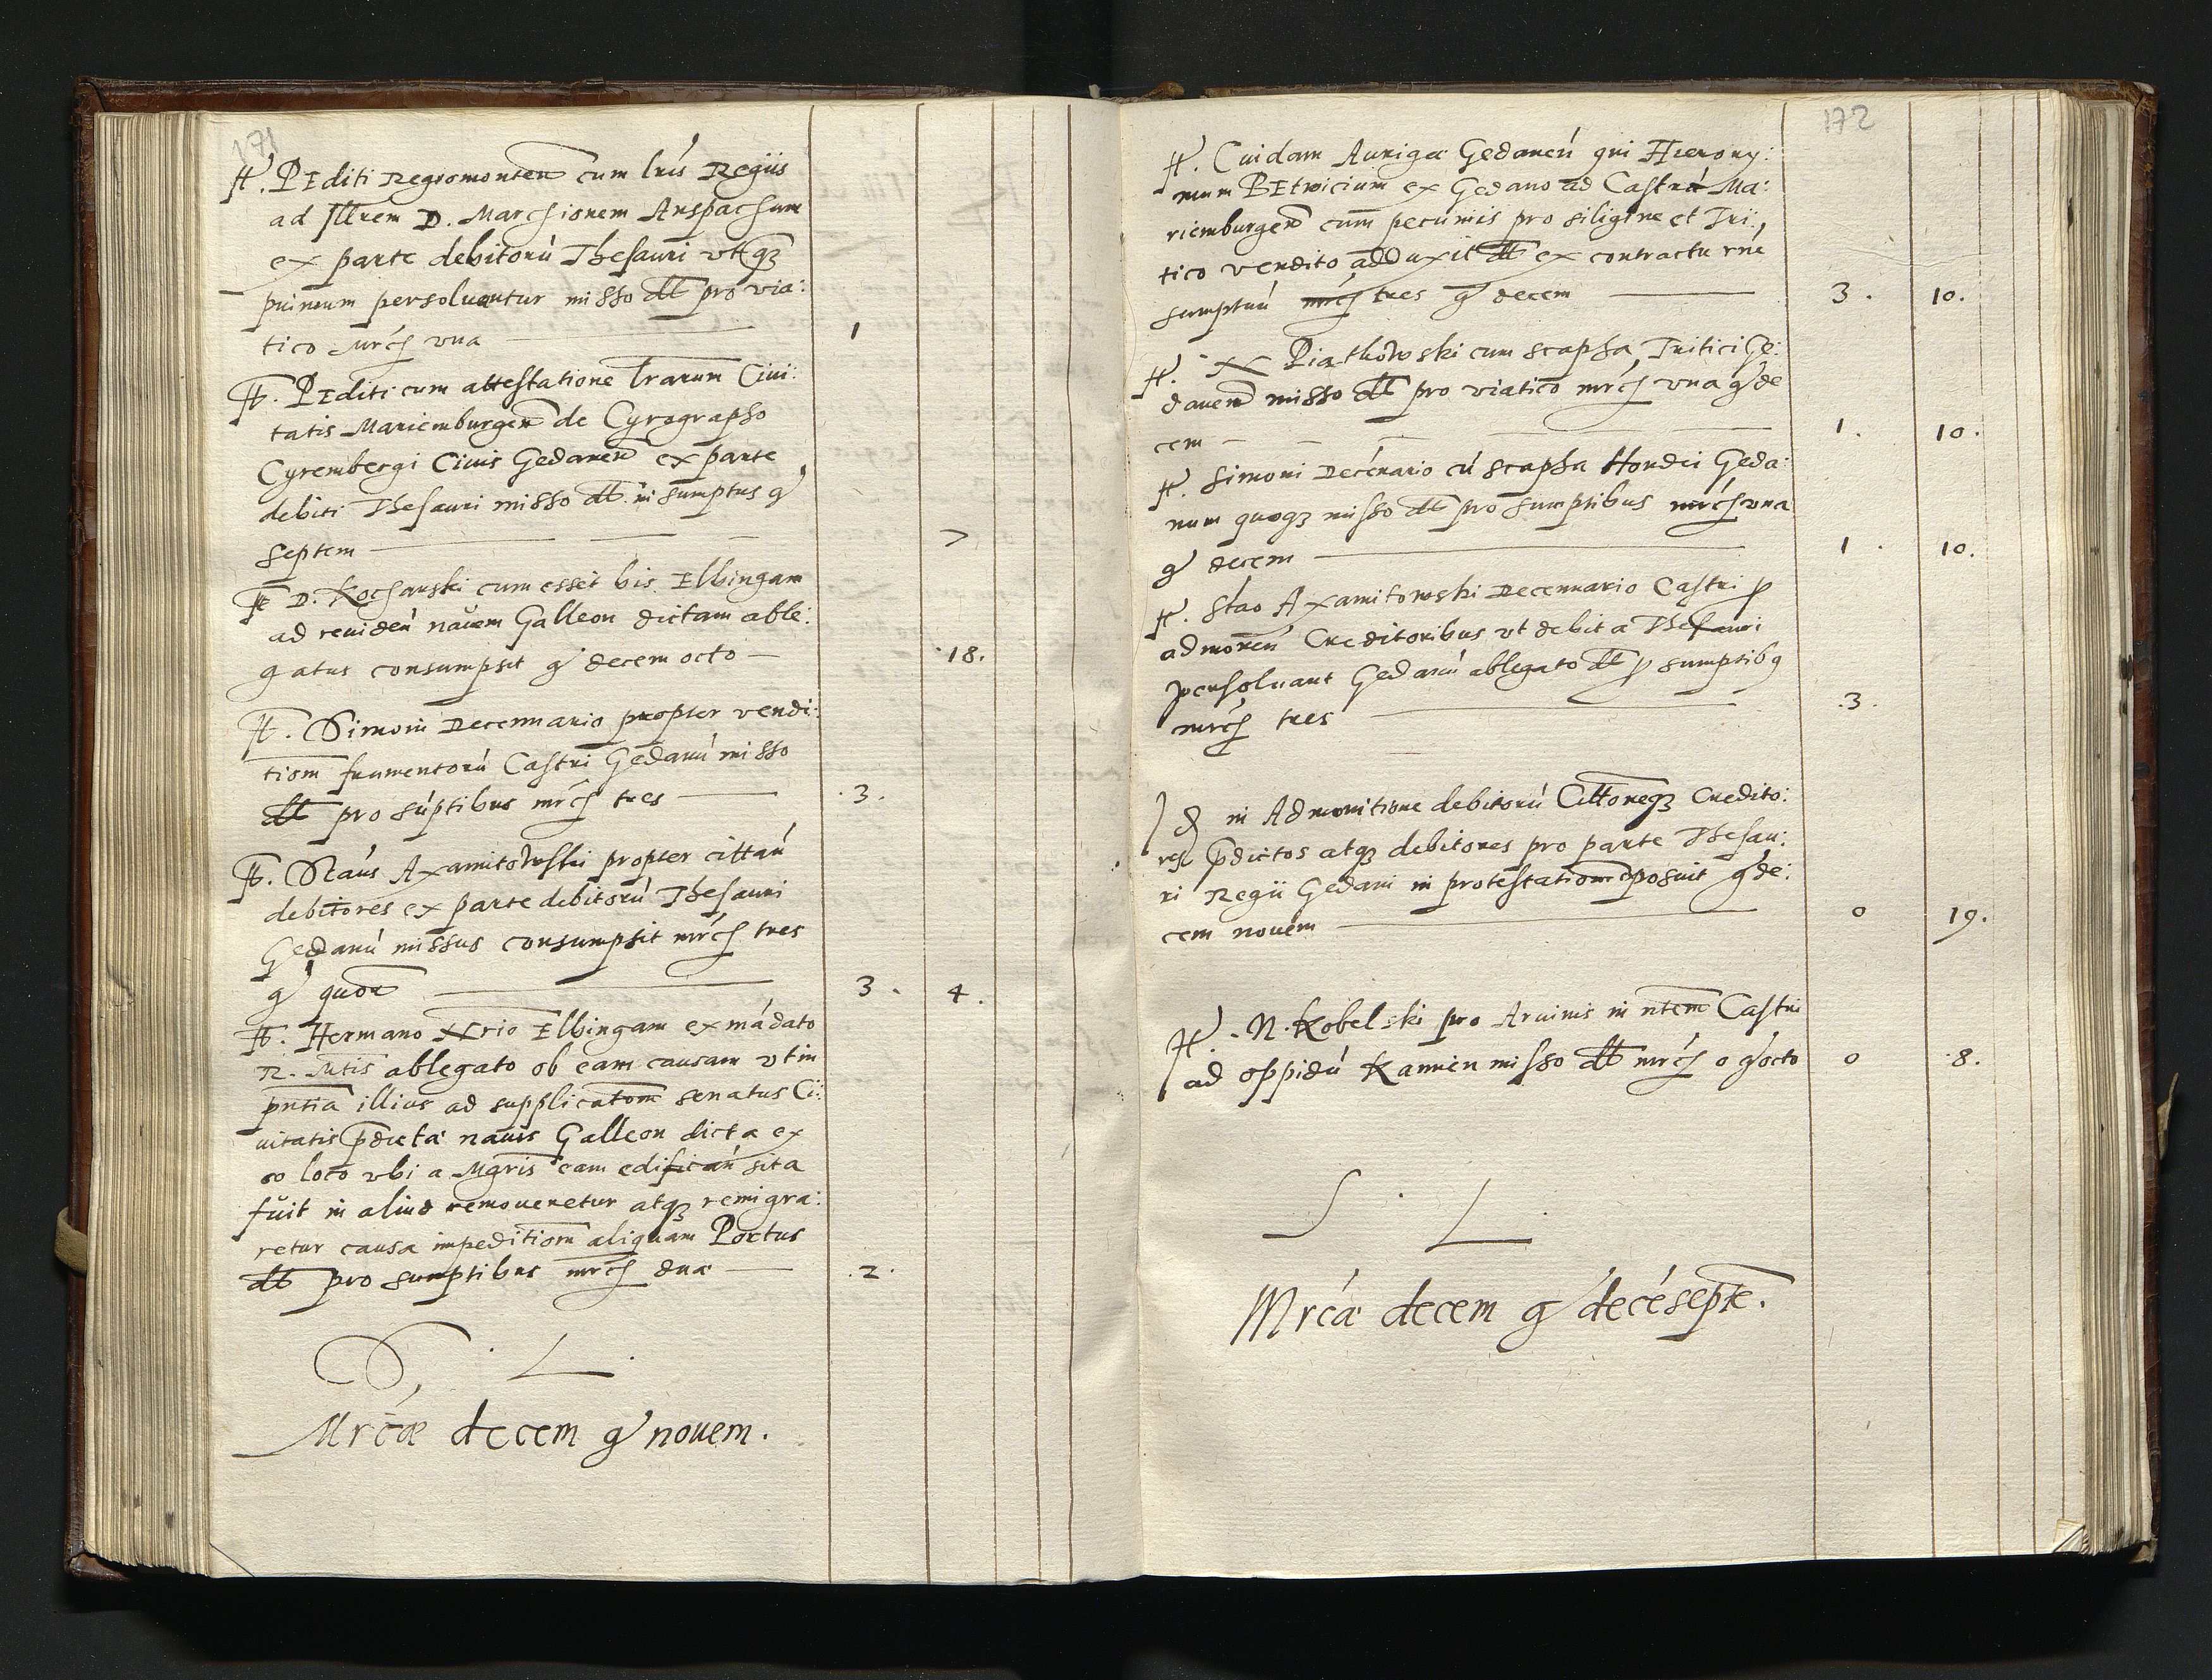 171
It. PEditi Regiomonten cum lris Regiis
ad Illrem D. Marchionem Anspachum
ex parte debitorū Thesauri vt
persoluantur misso dtt pro via:
tico Mrcę vna 1
It. PEditi cum attestatione lrarum Ciui:
tatis Mariemburgen de Cyrographo
Cyrembergi Ciuis Gedanen ex parte
debiti Thesauri misso dtt in sumptus g
septem 7
It D. Kochanski cum esset bis Elbingam
ad reuideń nauem Galleon dictam able:
gatus consumpsit g decem octo 18.
It. Simoni Decennario propter vendi:
tiom frumentorū Castri Gedanū misso
dtt pro sūptibus mrcę tres .3.
It. Staus Axamitowski propter cittań
debitores ex parte debitorū Thesauri
Gedanū missus consumpsit mrcę tres
g quor 3. 4.
It. Hermano Elbingam ex mādato
R. Mtis ablegato ob eam causam vt in
pntia illius ad supplicatom senatus Ci:
uitatis pdicta nauis Galleon dicta ex
eo loco vbi a Mgris eam edificań sita
fuit in aliud remoueretur atqȝ remigra:
retur causa impeditiom aliquam Portus
dtt pro sumptibus mrcę duæ .2.
S. L.
Mrcæ decem g nouem.
172
It. Cuidam Aurigæ Gedaneń qui Hierony:
mum BEtwicium ex Gedano ad Castrū Ma:
riemburgen cum pecuniis pro siligine et Tri:
tico vendito adduxit dtt ex contractu rńe
sumptuū mrcę tres g decem 3. 10.
It. Piątkowski cum scapha Tritici Ge:
danen misso dtt pro viatico mrcę vna g de
cem 1. 10.
It. Simoni Decēnario cū scapha Hordei Geda:
num quoqȝ misso dtt pro sumptibus mrcę vna
g decem 1. 10.
It. Stao Axamitowski Decennario Castri p
admoneń Creditoribus vt debita Thesauri
persoluant Gedanū ablegato dtt p sumptibȝ
mrcę tres .3.
Id in Admonitione debitorū Cittoneqȝ Credito:
res pdictos atqȝ debitores pro parte Thesau:
ri Regii Gedani in protestationē posuit g de:
cem nouem 0 19.
It. N. Kobelski pro Aruinis in ntem Castri
ad oppidū Kamien misso dtt mrcę 0 g octo 0 8.
S. L.
Mrcæ decem g decēsepte.